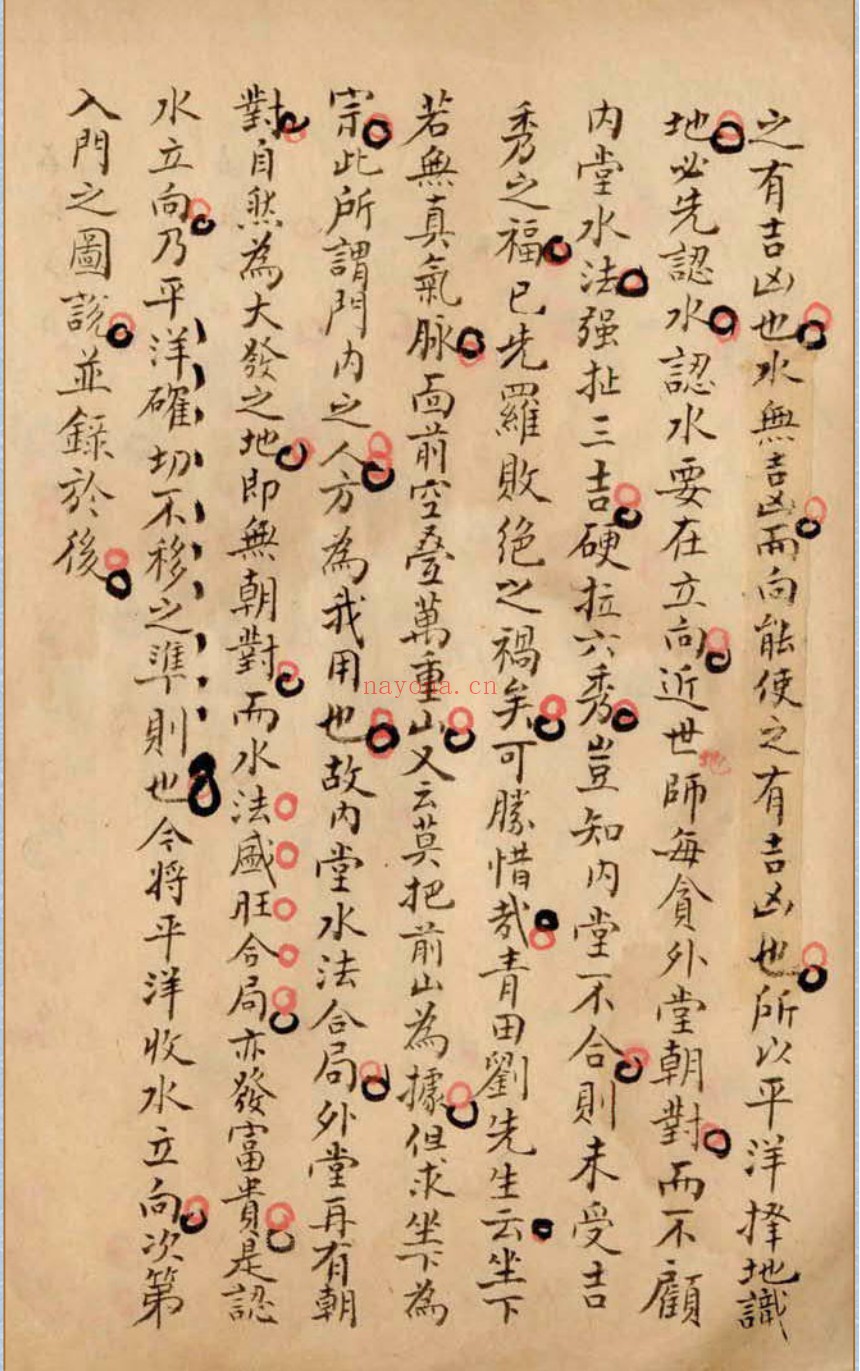 之有吉凶也水無吉凶而向能使之有吉凶也所以平洋擇地識
地必先認水認水要在立向近世師每貪外堂朝對而不顧
地
内堂水法强扯三吉硬拉六秀豈知内堂一不合則未受吉
秀之福已先罹敗絶之禍矣可勝惜哉青田劉先生云坐下
若無真氣脉面前空叠萬重山又云莫把前山為據但求坐下為
宗此所謂門内之人方為我用也故内堂水法合局外堂再有朝
對自然為大發之地即無朝對而水法盛旺合局亦發富貴是認
水立向乃平洋確切不移之準則也今將平洋收水立向次第
入門之圖説並錄於後
nayona.cn